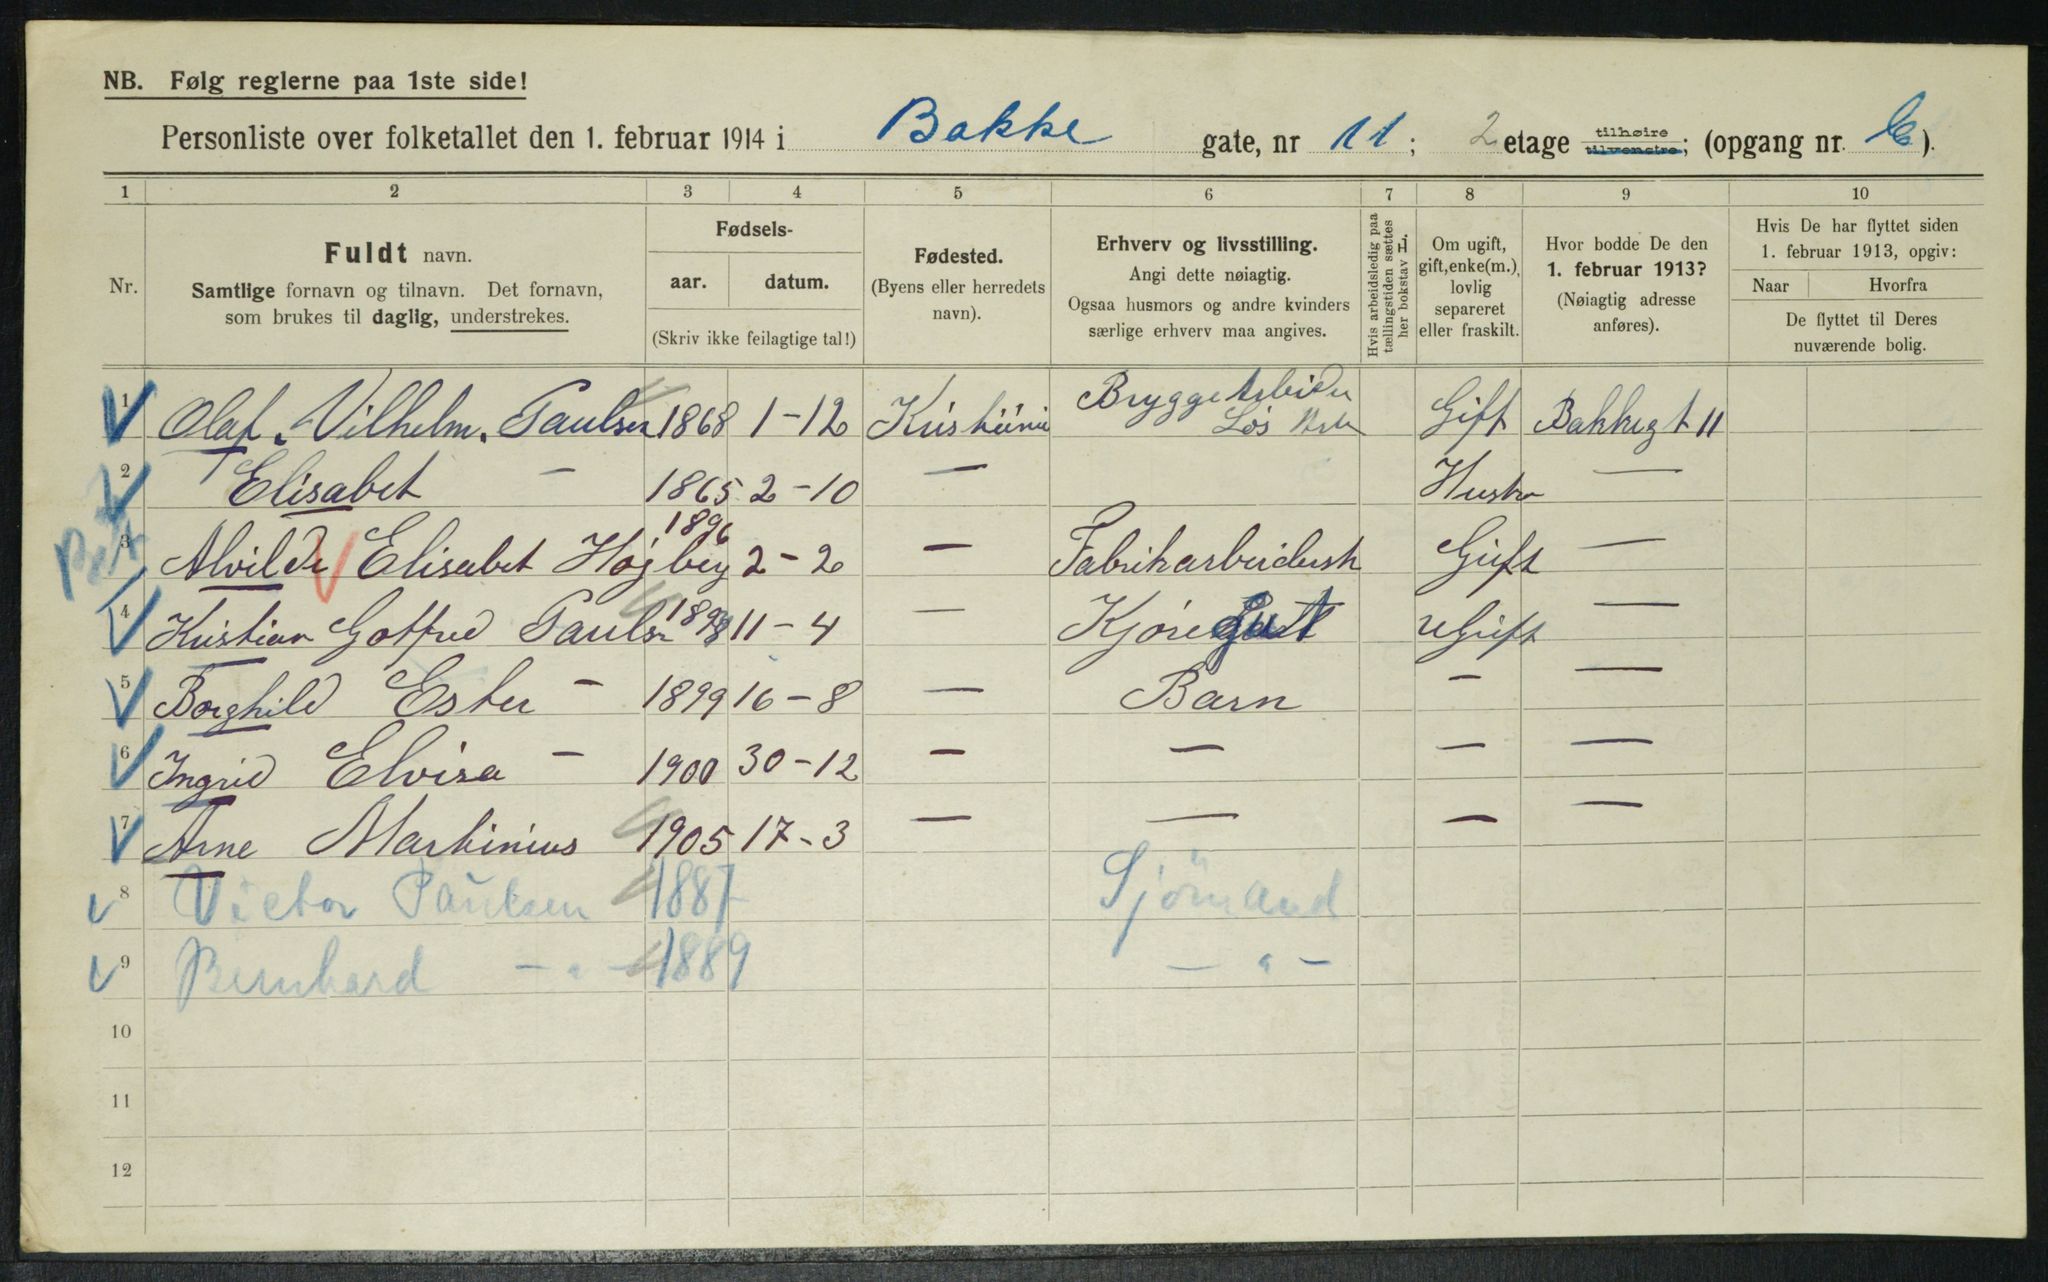 NB. Følg reglerne paa 1ste side!
Personliste over folketallet den 1. februar 1914 i Bakke gate, nr 11; 2 etage tilhøire tilvenstre; (opgang nr. ).
1 2 3 4 5 6 7 8 9 10
Nr.
Fuldt navn.
Samtlige fornavn og tilnavn. Det fornavn,
som brukes til daglig, understrekes.
Fødsels-
aar. datum.
(Skriv ikke feilagtige tal!)
Fødested.
(Byens eller herredets
navn).
Erhverv og livsstilling.
Angi dette nøiagtig.
Ogsaa husmors og andre kvinders
særlige erhverv maa angives.
Hvis arbeidsledig paa
tællingstiden sættes
her bokstav L.
Om ugift,
gift, enke(m.),
lovlig
separeret
eller fraskilt.
Hvor bodde De den
1. februar 1913?
(Nøiagtig adresse
anføres).
Hvis De har flyttet siden
1. februar 1913, opgiv:
Naar Hvorfra
De flyttet til Deres
nuværende bolig.
1 Olaf Vilhelm Paulsen 1868 1-12 Kristiania Brygge Arbeider Løs Gift Bakkegt 11
2 Elisabet - 1865 2-10 — Hustru —
3 Alvilde Elisabet Højbey 1896 2-2 — Fabrikarbeidersk Gift —
4 Kristian Gotfred Paulsen 1898 11-4 — Kjøregut UGift —
5 Borghild Ester - 1899 16-8 — Barn - —
6 Ingrid Elvira - 1900 30-12 — — — —
7 Arne Martinius 1905 17-3 — — — —
8 Victor Paulsen 1887 Sjömand
9 Bernhard -"- 1889 -"-
10
11
12